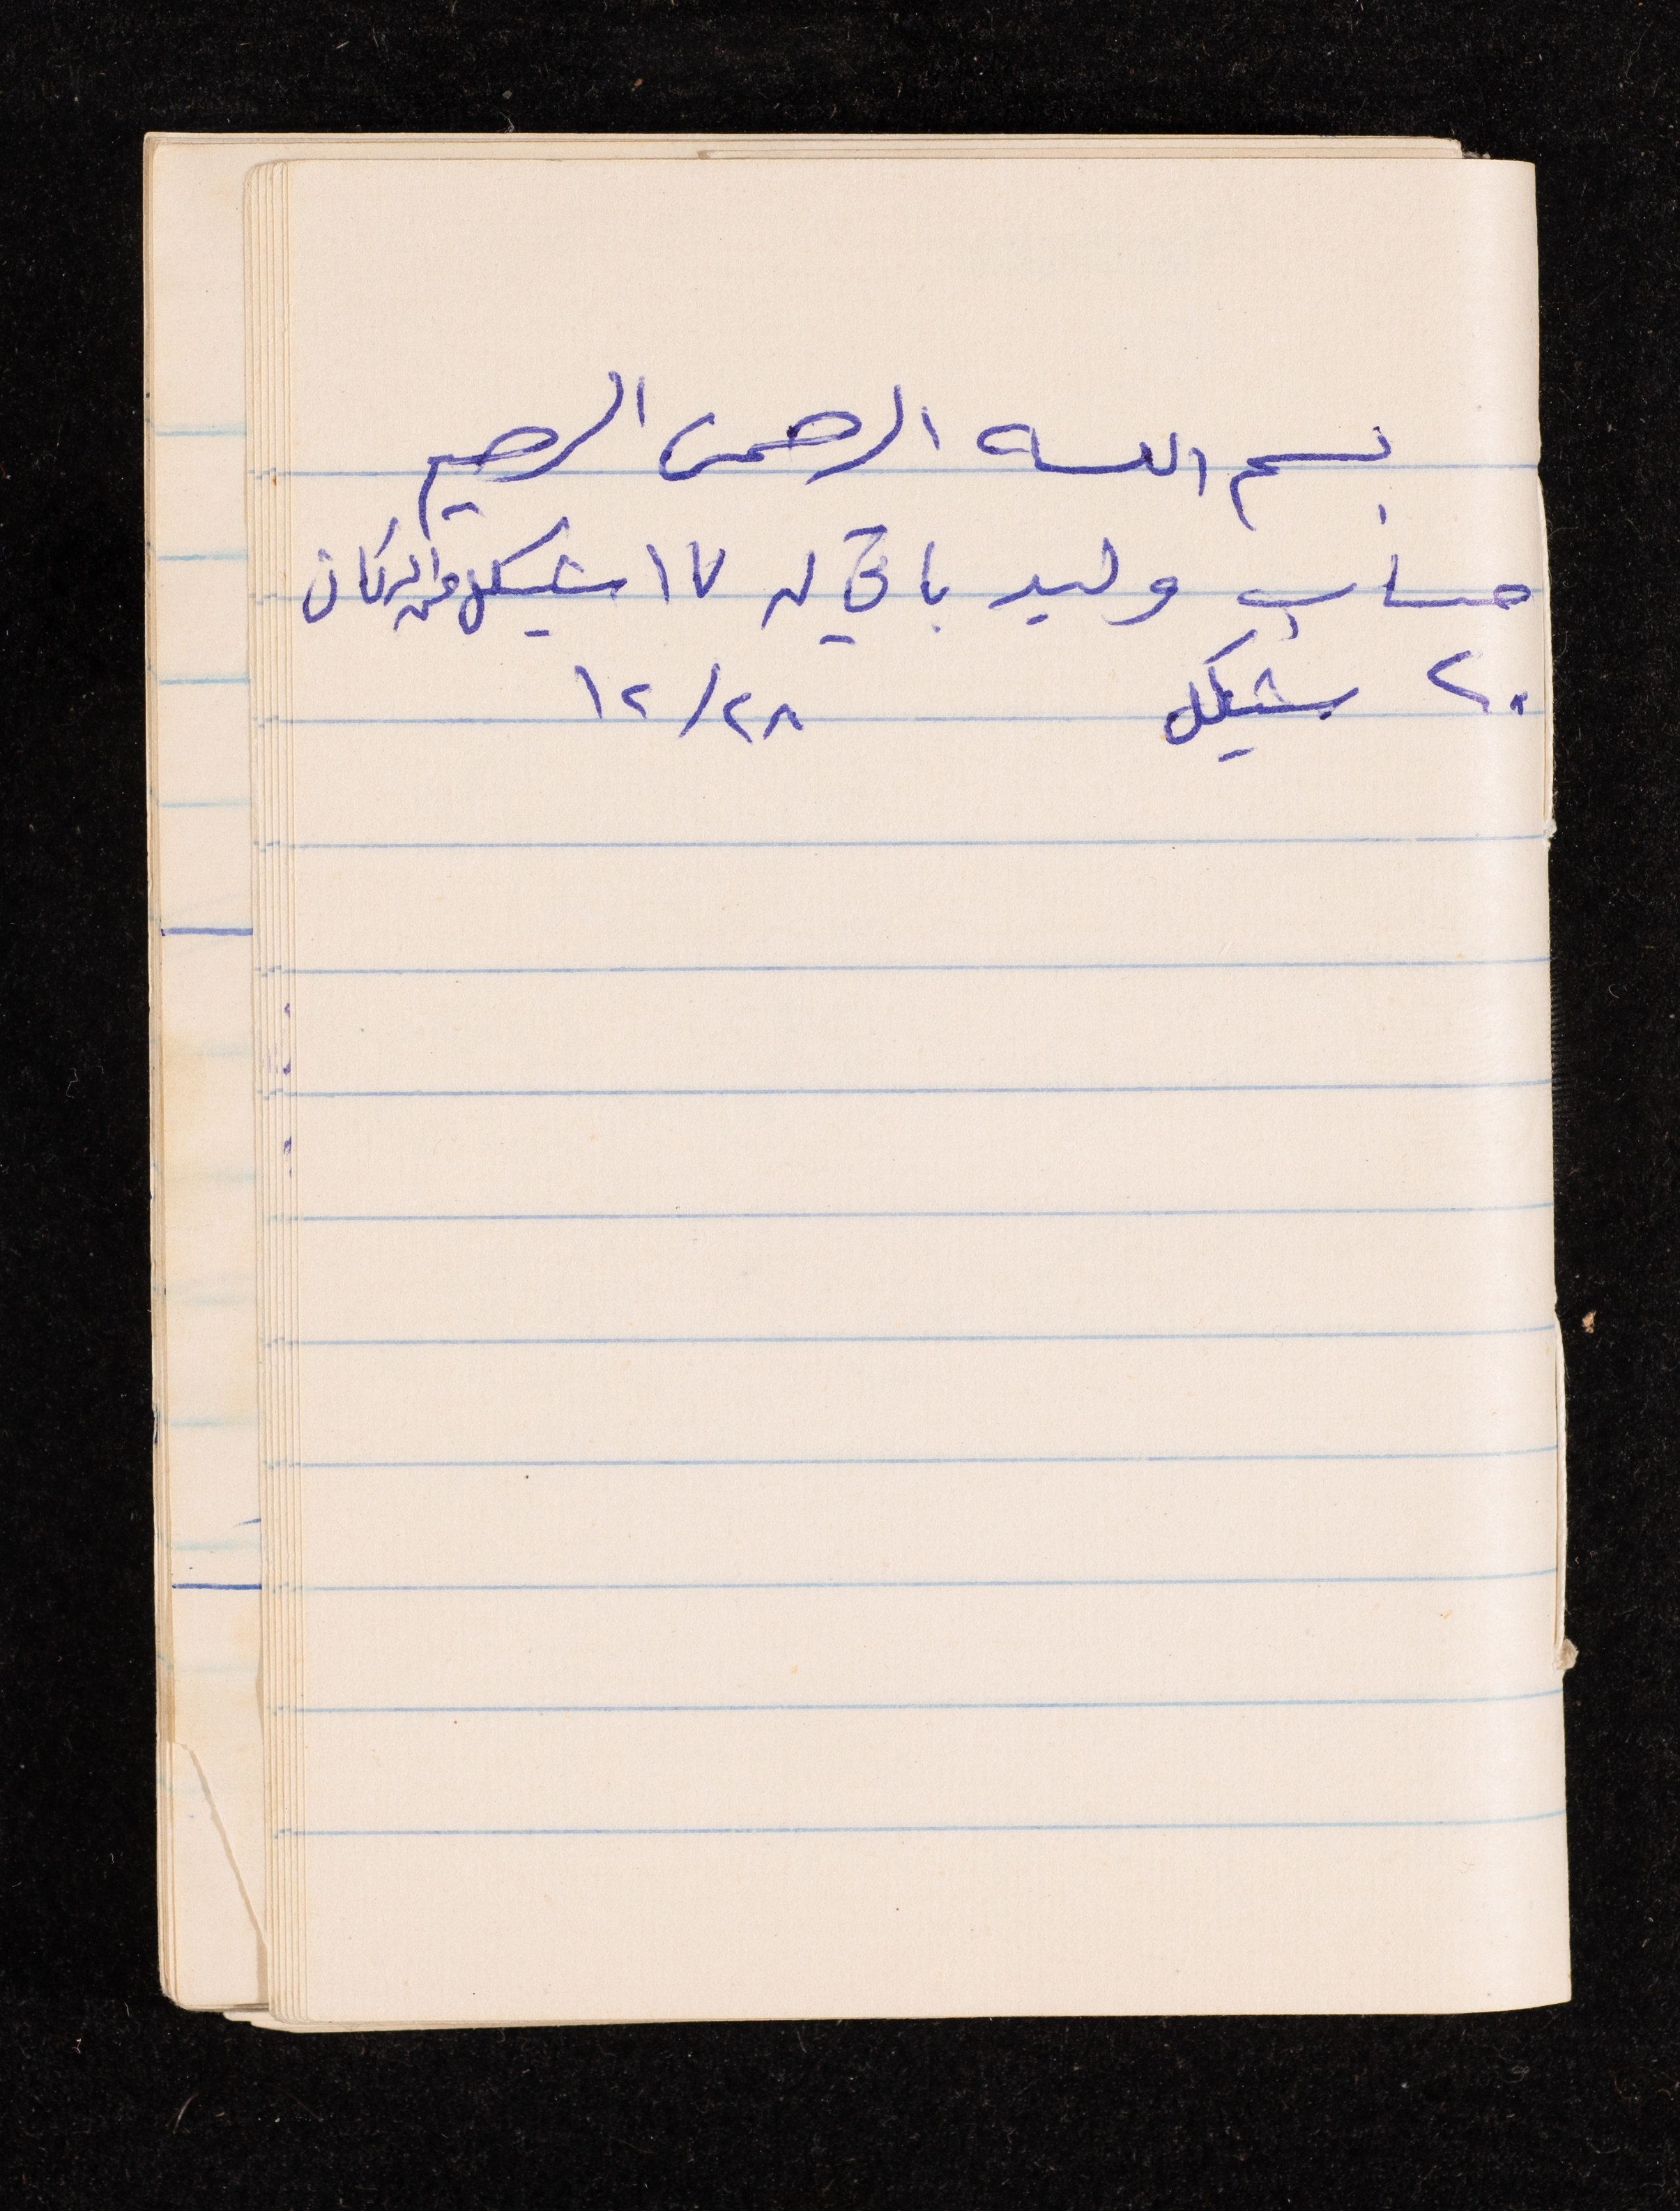 بسم الله الرحمن الرحيم
حساب وليد باقي له ١٧ شيكل الدكان
٢٠ شيكل ١٢/٢٨